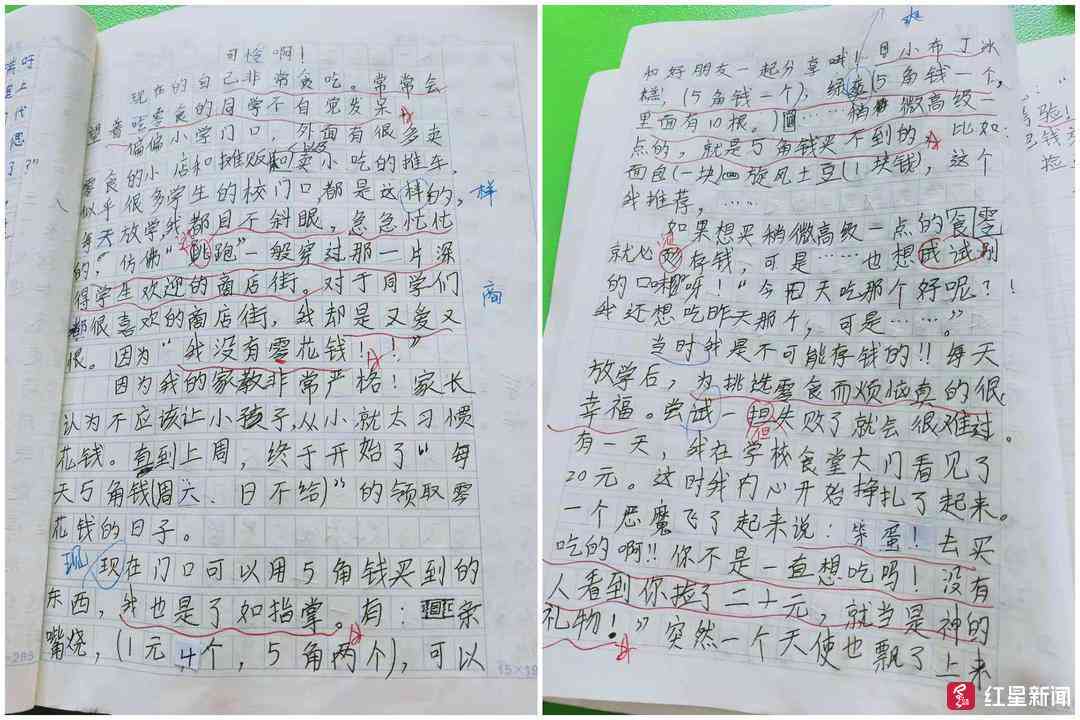 可怜啊！
现在的自己非常贪吃。常常会
望着吃零食的同学不自觉发呆
偏偏小学门口，外面有很多卖
零食的小店和摊贩和卖小吃的推车，
似乎很多学生的校门口，都是这样的，
样
每天放学，我都目不斜眼，急急忙忙
的，仿佛“跳跑”一般穿过那一片深
得学生欢迎的商店街。对于同学们
商
都很喜欢的商店街，我却是又爱又
恨。因为“我没有零花钱！！”
因为我的家教非常严格！家长
认为不应该让小孩子，从小就太习惯
花钱。直到上周，终于开始了“每
天5角钱(周六、日不给)”的领取零
花钱的日子。
现
现在门口可以用5角钱买到的
东西，我也是了如指掌。有：
嘴烧，(1元4个，5角两个)，可以
15×19
和好朋友一起分享哦！小布丁冰
糕，(5角钱一个)，绿爽(5角钱一个，
里面有10根。)……稍微高级一
点的，就是5角钱买不到的。比如：
面包(一块)旋风土豆(1块钱)，这个
我推荐，……
如果想买稍微高级一点的食零
就必须存钱，可是……也想试试别
的口味呀！“今天吃那个好呢？！
我还想吃昨天那个，可是……。”
当时我是不可能存钱的!! 每天
放学后，为挑选零食而烦恼真的很
幸福。尝试一但失败了就会很难过。
但
有一天，我在学校食堂大门看见了
20元。这时我内心开始挣扎了起来。
一个恶魔飞了起来说：笨蛋！去买
吃的啊!! 你不是一直想吃吗！没有
人看到你捡了二十元，就当是神的
礼物！”突然一个天使也飘了上来
红星新闻